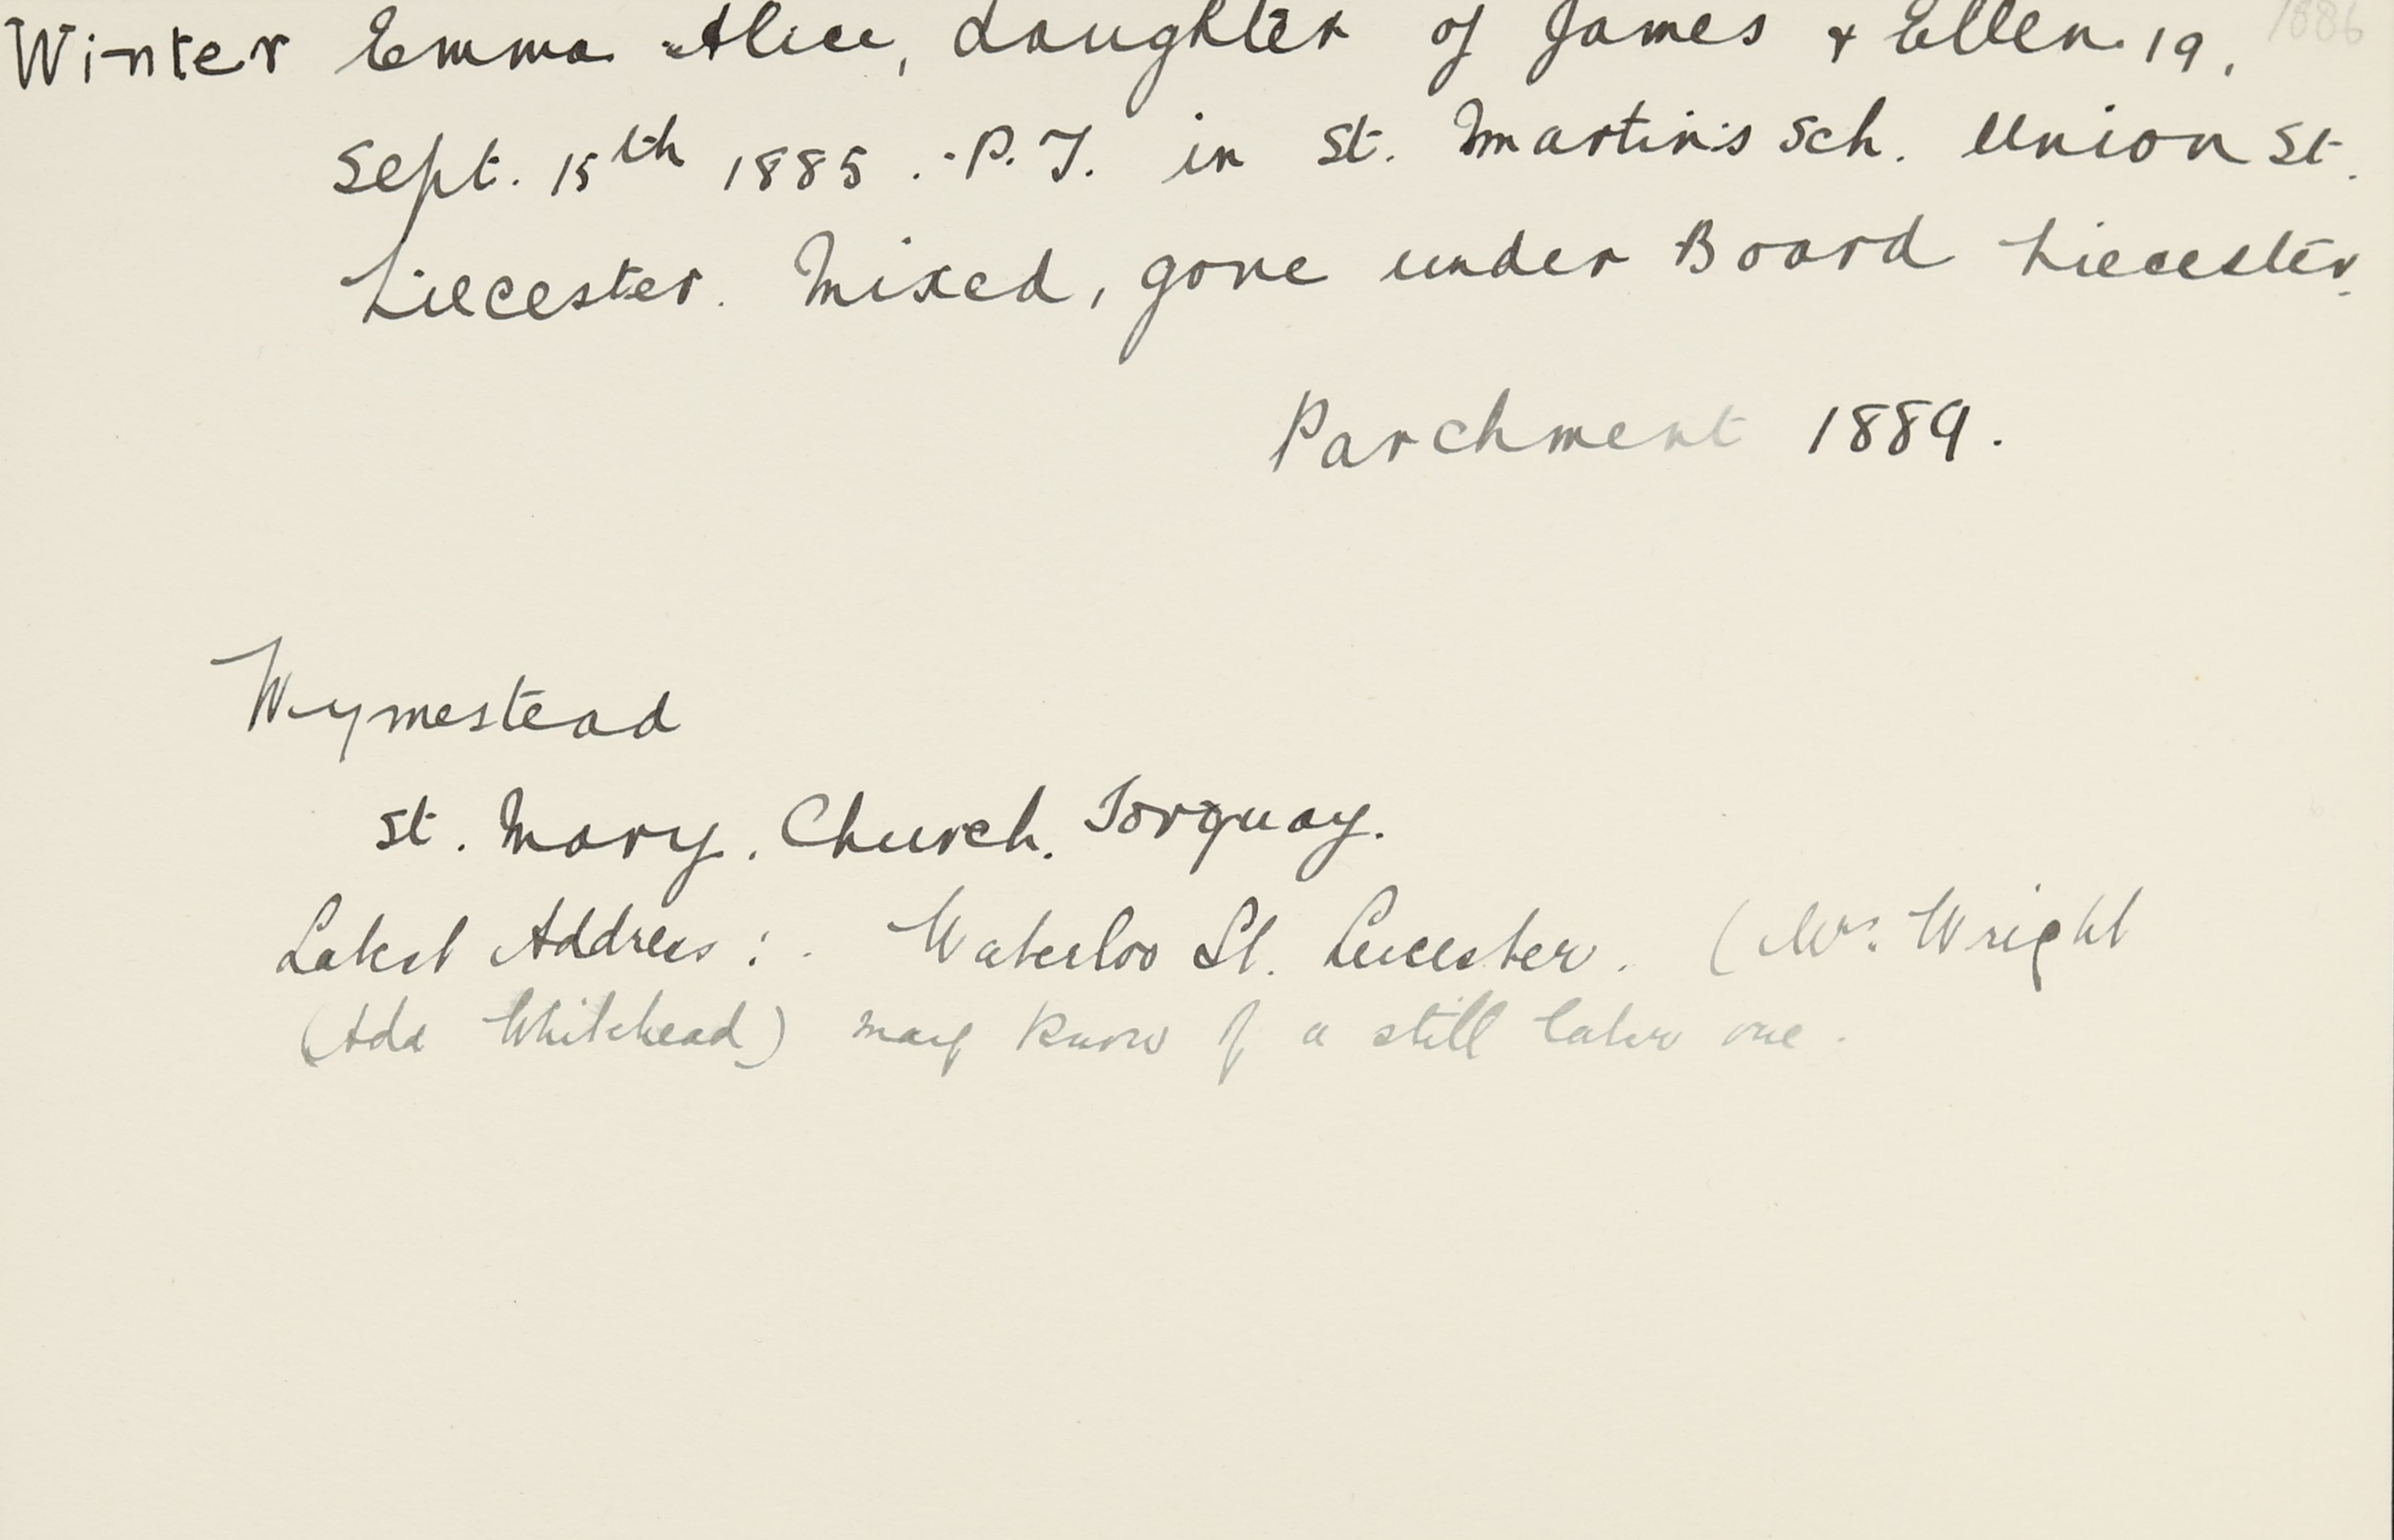 Winter Emma Alice, daughter of James & Ellen. 19, 1886
Sept. 15th 1885. - P.T. in St. Martin's Sch. Union St.
Liecester. Mixed, gone under Board Liecester.
Parchment 1889.
Wymestead
St. Mary. Church. Torquay.
Latest Address :. Waterloo St. Leicester. (Mrs. Wright
(Ada Whitehead) may know of a still later one.